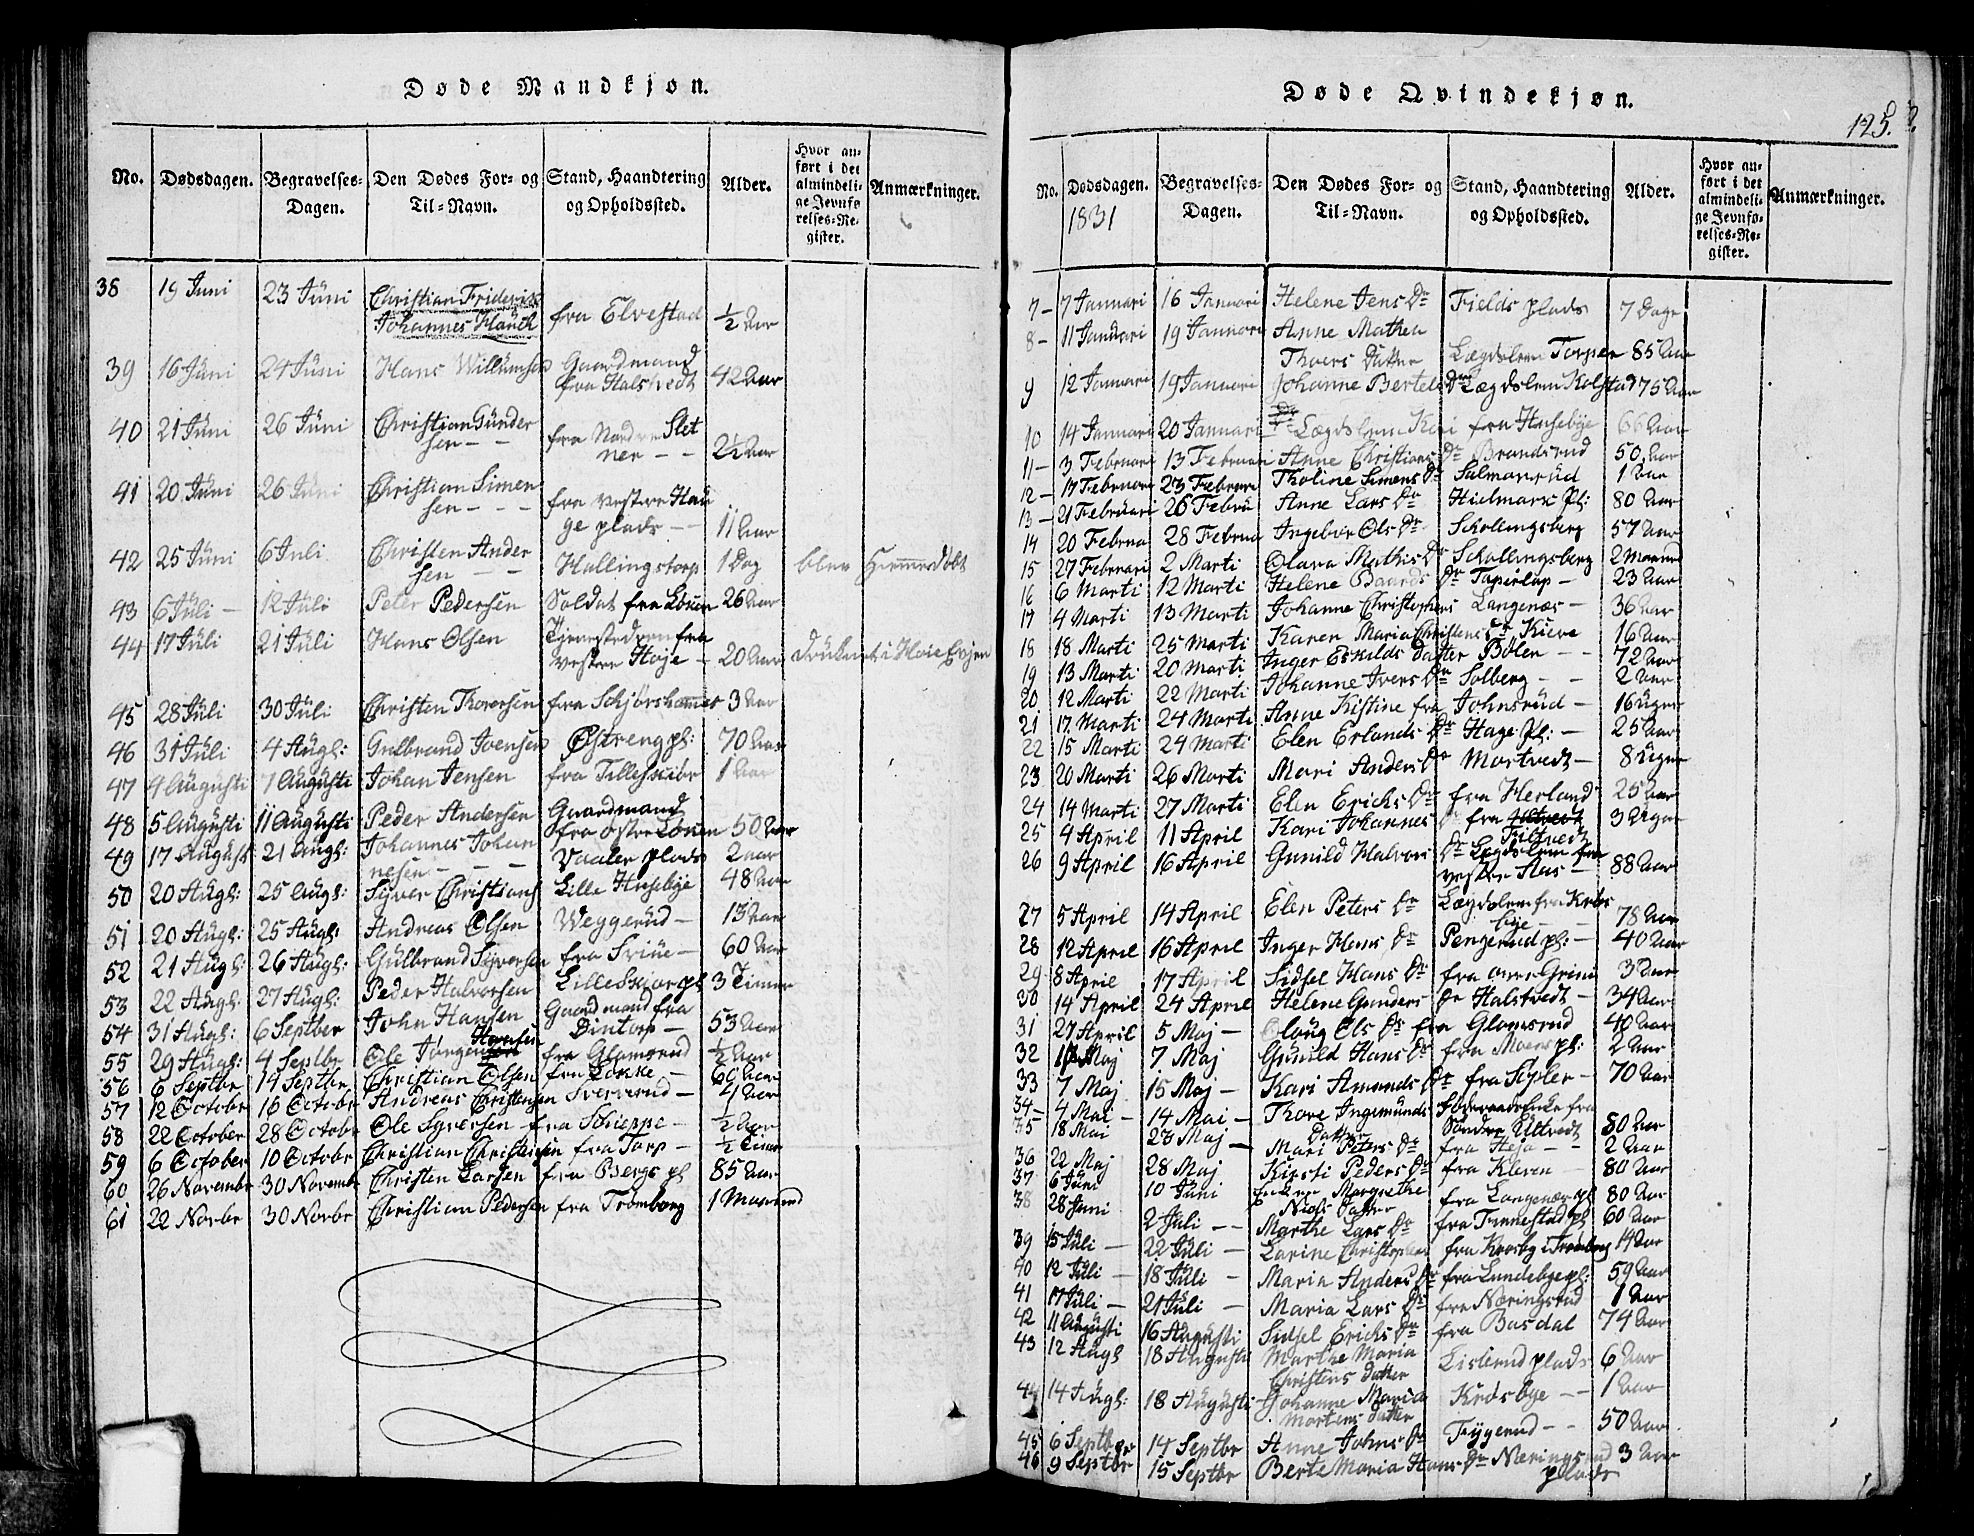 Døde Mandkjøn.
No. Dødsdagen. Begravelses-Dagen. Den Dødes For- og Til-Navn. Stand, Haandtering og Opholdssted. Alder. Hvor anført i det almindelige Jevnførelses-Register. Anmærkninger.
38 19 Juni 23 Juni Christian Friderik
Johannes Hauch fra Elvestad ½ Aar
39 16 Juni 24 Juni Hans Willumsen Gaardmand
fra Halstvedt 42 Aar
40 21 Juni 26 Juni Christian Gunder
sen - - fra Nordre Slet
ner - - 2½ Aar
41 20 Juni 26 Juni Christian Simen
sen - - - fra vestre Hau
ge plads - - 11 Aar
42 25 Juni 6 Juli Christen Ander
sen - - Hallingstorp 1 Dag blev Hiemmedøbt
43 6 Juli - 12 Juli Peter Pedersen Soldat fra Løken 26 Aar
44 17 Juli 21 Juli Hans Olsen Tjenestedreng fra
vestre Høje - 20 Aar druknet i Høie Evjen
45 28 Juli 30 Juli Christen Thoresen fra Schjørshammer 3 Aar
46 31 Juli 4 Augl: Gulbrand Joensen Østreng pl: 70 Aar
47 4 Augusti 7 Augusti Johan Jensen fra Tilleskiør 1 Aar
48 5 Augusti 11 Augusti Peder Andersen Gaardmand
fra østre Løken 50 Aar
49 17 August 21 Augl: Johannes Johan
nesen - - - Vaaler plads 2 aar
50 20 Augl: 25 Augl: Syver Christians Lille Husebye 48 Aar
51 20 Augl: 25 Augl: Andreas Olsen Weggerud - 13 Aar
52 21 Augl: 26 Augl: Gulbrand Syversen fra Sviue - 60 Aar
53 22 Augl: 27 Augl: Peder Halvorsen Lille Skjør pl 3 Timer
54 31 Augl: 6 Septber John Hansen Gaardmand fra
Dintorp - 53 Aar
55 29 Augl: 4 Septbr Ole Jørgen Hansen fra Glomsrud ½ Aar
56 6 Septbr 14 Septbr Christian Olsen fra Løkke - 60 Aar
57 12 October 16 October Andreas Christensen Sververud - 4 Aar
58 22 October 28 October Ole Syversen fra Schieppe - ½ Aar
59 6 October 10 Octobr Christian Christensen fra Torp - ½ Time
60 26 Novembr 30 Novembr Christen Larsen fra Bergs pl 85 Aar
61 22 Norbr 30 Norbr Christian Pedersen fra Tromborg 1 Maaned
Døde Qvindekjøn.
125.
No. Dødsdagen. 1831 Begravelses-Dagen. Den Dødes For- og Til-Navn. Stand, Haandtering og Opholdssted. Alder. Hvor anført i det almindelige Jevnførelses-Register. Anmærkninger.
7 - 7 Januari 16 Januari Helene Jens Dr Fields plads 7 Dage
8 - 11 Januari 19 Januari Anne Mathea
Thoers Datter Lægdslem Torper 85 Aar
9 12 Januari 19 Januari Johanne Bertels Dr Lægdslem Kolstad 75 Aar
10 14 Januari 20 Januari Lægdslem Kari fra Husebye 66 Aar
11 - 3 Februari 13 Februari Anne Christians Dr Brandsrud 50 Aar
12 - 17 Februari 23 Februari Tholine Simens Dr Salmansrud 1 Aar
13 - 21 Februari 26 Februa Anne Lars Dr Hielmark Pl: 80 Aar
14 20 Februa 28 Februa Ingebor Ols Dr Schollingsberg 57 Aar
15 27 Februari 2 Marti Olava Mathis Dr Schollingsberg 2 Maaned
16 6 Marti 12 Marti Helene Baards Dr Taperløp - 23 Aar
17 4 Marti 13 Marti Johanne Christophers Langenæs - 36 Aar
18 18 Marti 25 Marti Karen Maria Christens Dr Kieve 16 Aar
19 13 Marti 20 Marti Inger Eskilds Datter Bølen - - 72 Aar
20 12 Marti 22 Marti Johanne Ivers Dr Solberg - - 2 Aar
21 17 Marti 24 Marti Anne Kistine fra Johnsrud - 16 Uger
22 15 Marti 24 Marti Elen Erlands Dr Hage Pl: - 25 Aar
23 20 Marti 26 Marti Mari Anders Dr Mortvedt - 8 Uger
24 14 Marti 27 Marti Elen Erichs Dr fra Herland 25 Aar
25 4 April 11 April Kari Johannes Dr fra Filtvedt 3 Uger
26 9 April 16 April Gunild Halvors Dr Lægdslem fra
vestre Aas - 88 Aar
27 5 April 14 April Elen Peters Dr Lægdslem fra Krós
bye - - 78 Aar
28 12 April 16 April Inger Hans Dr Pengerud pl: - 40 Aar
29 8 April 17 April Sidsel Hans Dr fra øvre Grini 3 Aar
30 14 April 24 April Helene Gunders Dr Halstvedt - 34 Aar
31 27 April 5 Maj - Oloug Ols Dr fra Glomsrud 40 Aar
32 1 Maj 7 Maj Gunild Hans Dr fra Moens pl: 2 Aar
33 7 Maj 15 Maj - Kari Amunds Dr fra Sepler - 70 Aar
34 - 4 Mai - 14 Mai - Thore Ingemunds Føderaadsenke fra
35 18 Mai 23 Maj - Datter Søndre Ultvedt 80 Aar
36 22 Maj 28 Maj Mari Peters Dr fra Heja - - 2 Aar
37 6 Juni 10 Juni Kirsti Peders Dr fra Kleven - 80 Aar
38 28 Juni 2 Juli - - Enken Margrethe
Niels Datter fra Langenæs pl 80 Aar
Marthe Lars Dr fra Finnestad pl 60 Aar
39 15 Juli - 22 Juli - Larine Christophers fra Krosby i Tromborg 14 Aar
40 12 Juli - 18 Juli - Maria Anders Dr fra Lundebye pl: 59 Aar
41 17 Juli - 21 Juli - Maria Lars Dr fra Næringsrud 1 Aar
42 11 Augusti 16 Augusti Sidsel Erichs Dr fra Basdal 74 Aar
43 12 Augl 18 Augusti Marthe Maria
Christens Datter Lislerud plads 6 Aar
44 14 Augl: 18 Augusti Johanne Maria
Mortens Datter Krósbye - - 1 Aar
45 6 Septber 14 Septbr Anne Johns Dr Tÿgerud - - 50 Aar
46 9 Septbr 15 Septbr Berte Maria Hans Dr Næringsrud 3 Aar
plads